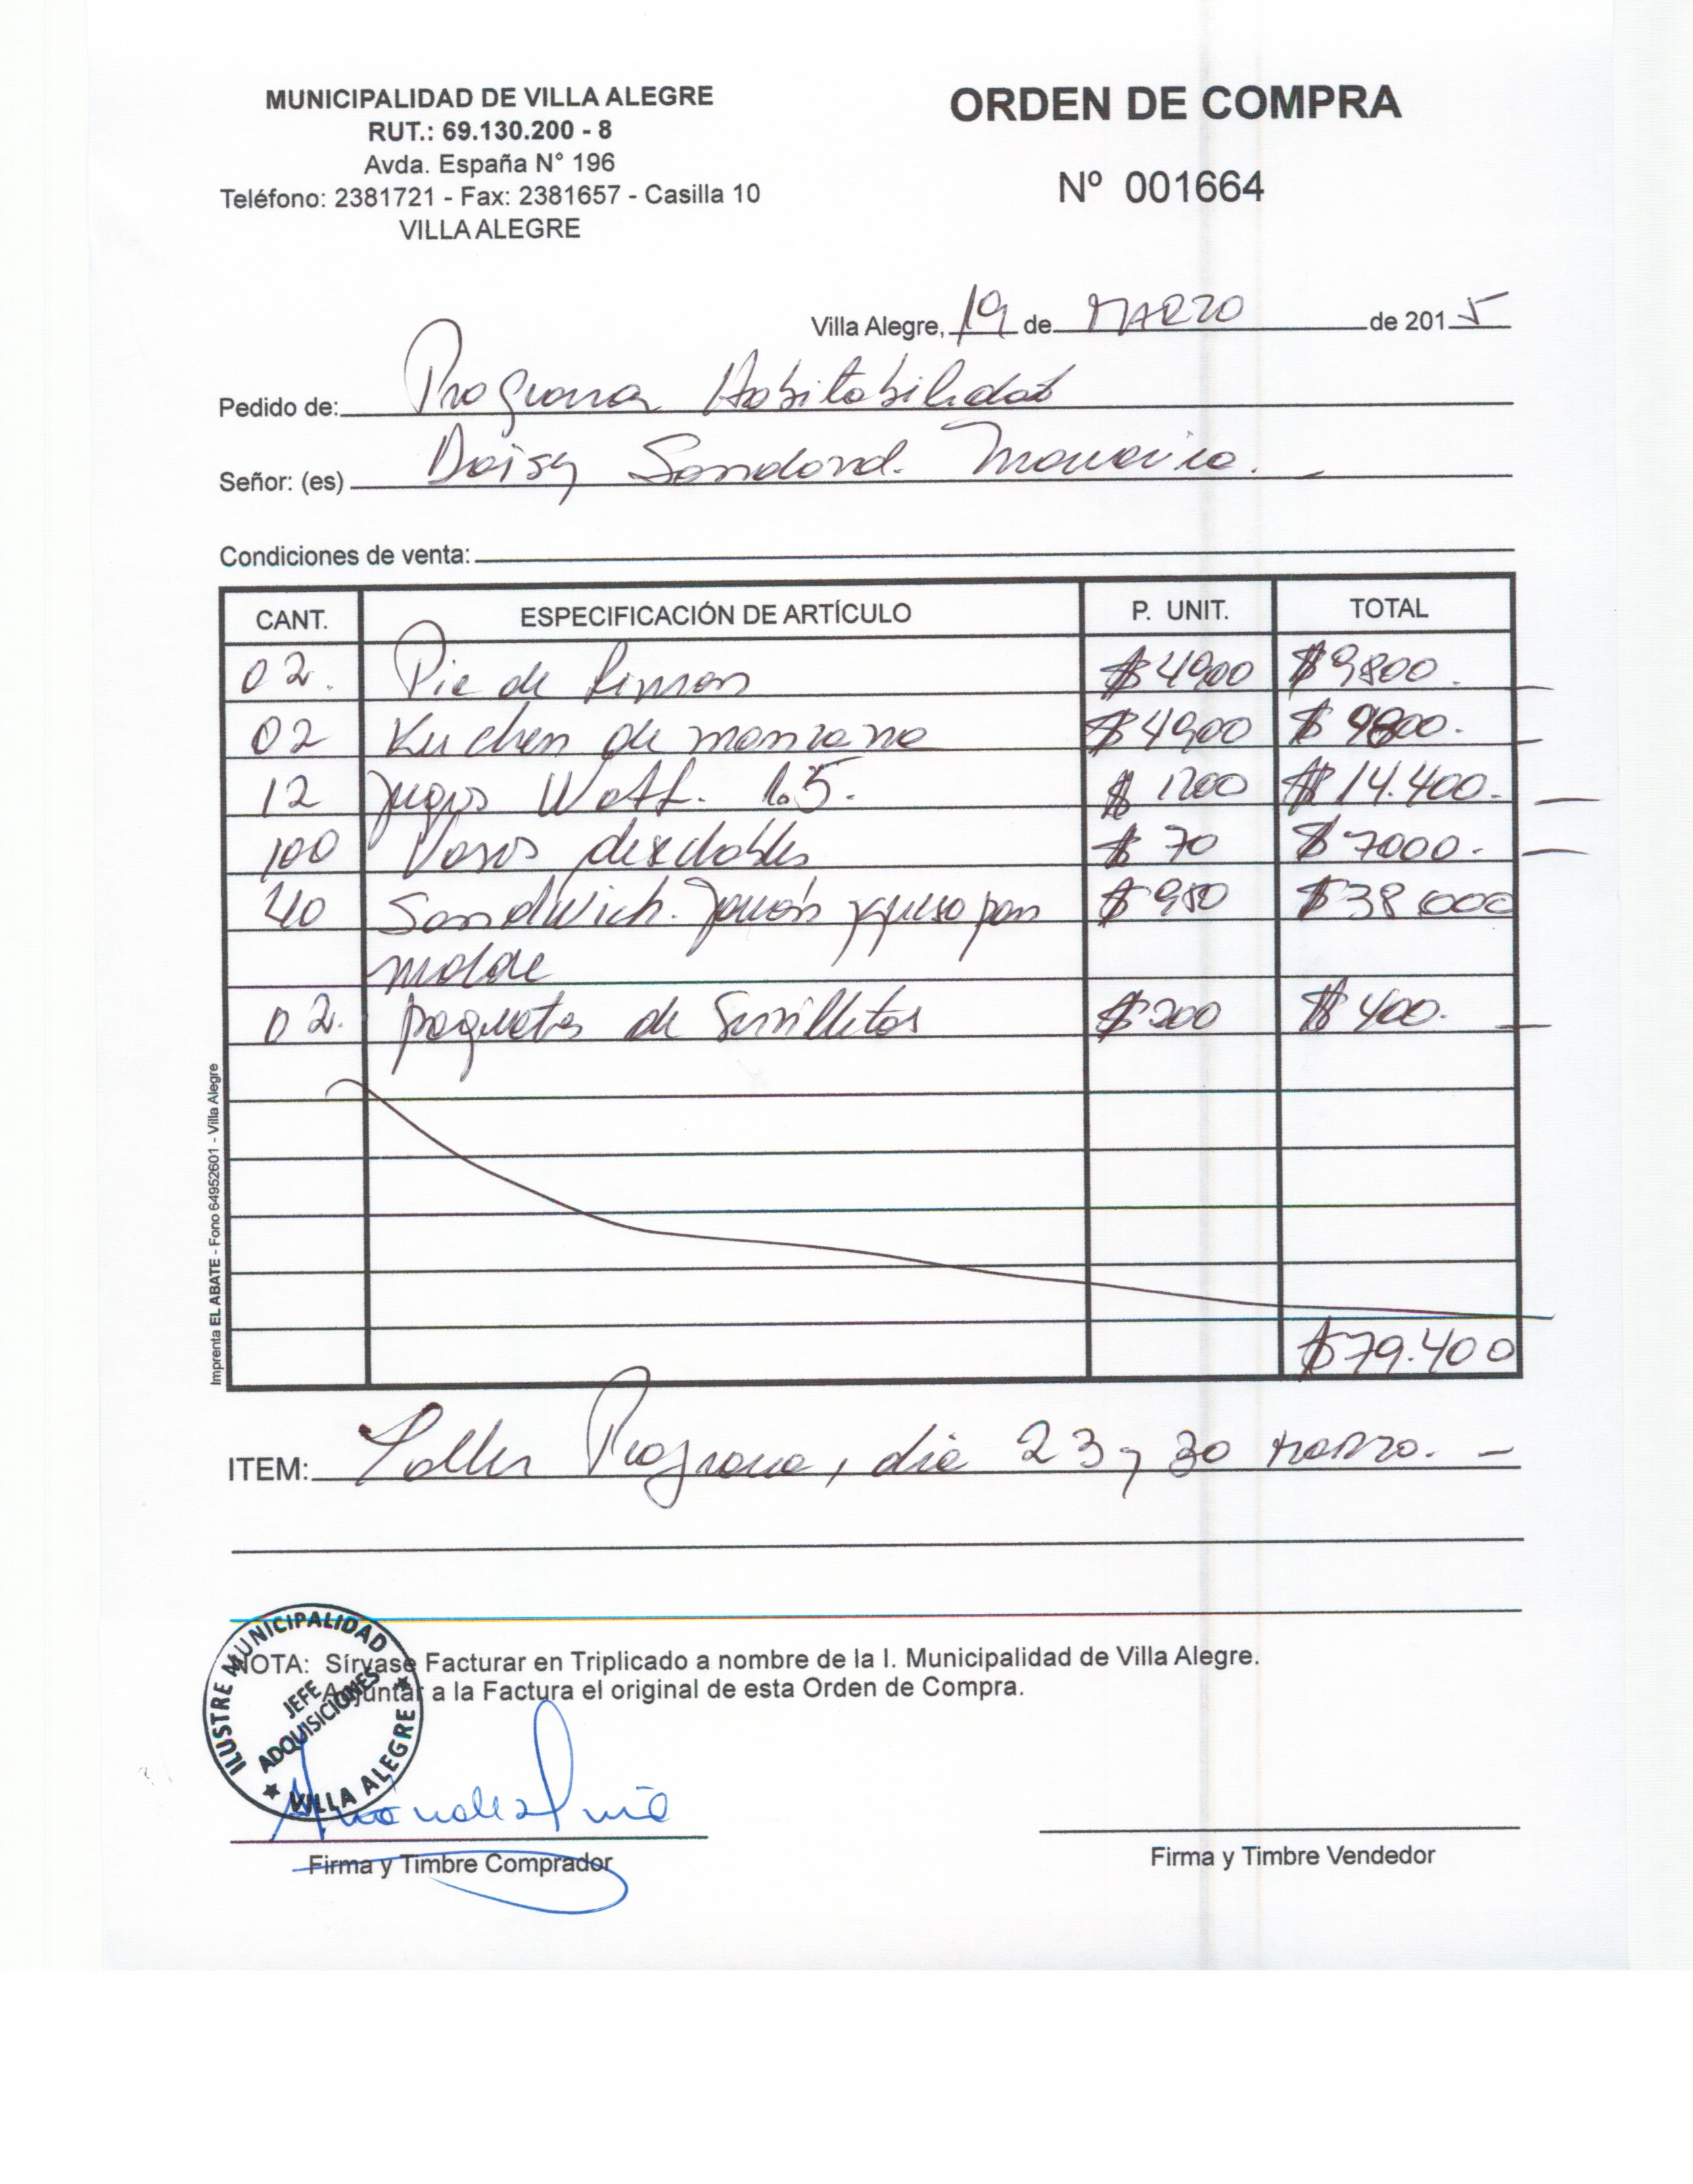 MUNICIPALIDAD DE VILLA ALEGRE
RUT.: 69.130.200 - 8
Avda. España N° 196
Teléfono: 2381721 - Fax: 2381657 - Casilla 10
VILLA ALEGRE
ORDEN DE COMPRA
Nº 001664
Villa Alegre, 19 de MARZO de 2015
Pedido de: Programa Habitabilidad
Señor: (es) Daisy
Condiciones de venta:
CANT. ESPECIFICACIÓN DE ARTÍCULO P. UNIT. TOTAL
02. Pie de Limon $4900 $9800.
02 Kuchen de manzana $4900 $9800.
12 Jugos Watt. 1.5. $1200 $14.400.-
100 Vasos $70 $7000.-
40 Sandwich. Jamón y queso pan $950 $38000
molde
02. paquetes de Servilletas $200 $400.
$79.400
ITEM: Taller Programa, dia 23 y 30 marzo. -
NOTA: Sírvase Facturar en Triplicado a nombre de la I. Municipalidad de Villa Alegre.
Adjuntar a la Factura el original de esta Orden de Compra.
ILUSTRE MUNICIPALIDAD
JEFE
ADQUISICIONES
★ VILLA ALEGRE ★
Firma y Timbre Comprador
Firma y Timbre Vendedor
Imprenta EL ABATE - Fono 64952601 - Villa Alegre